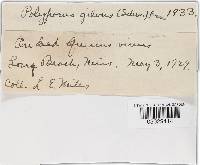 Polyporus gilvus (Schw.) Fr. 1933.
On dead Quercus virens
Long Beach, Miss. May 3, 1929.
Coll. L. E. Miles